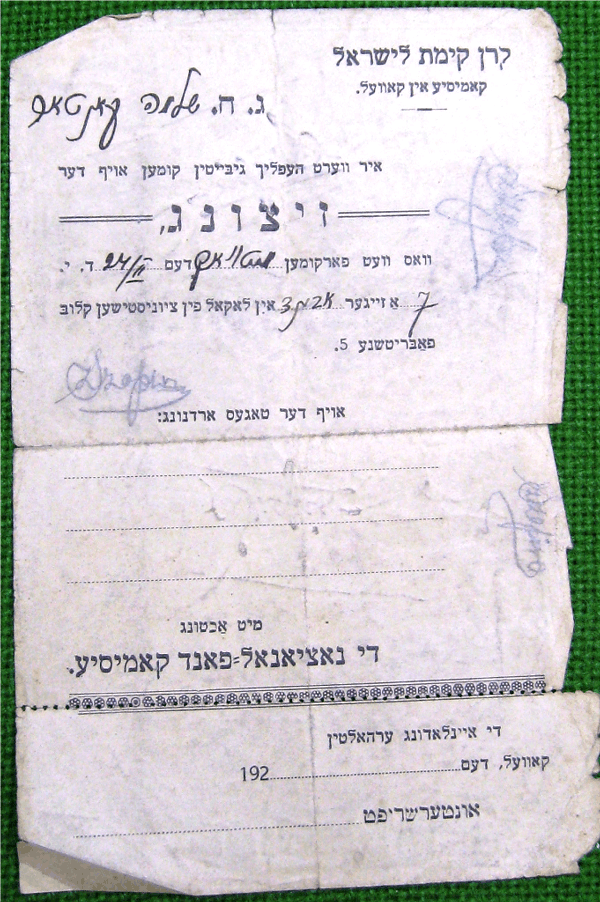 קרן קימת לישראל
קאמיסיע אין קאוועל.
ג. ח. שלמה
איר ווערט העפליך געבייטין קומען אויף דער
זיצונג,
וואס וועט פארקומען דעם 24/II ד. י.
7 אַזייגער אבענד אין לאקאל פין ציוניסטישען קלוב
פאַבריטשנע 5.
אויף דער טאגעס ארדנונג:
מיט אַכטונג
די נאציאנאל-פאנד קאמיסיע.
די איינלאדונג ערהאלטין
קאוועל, דעם 192
אונטערשריפט